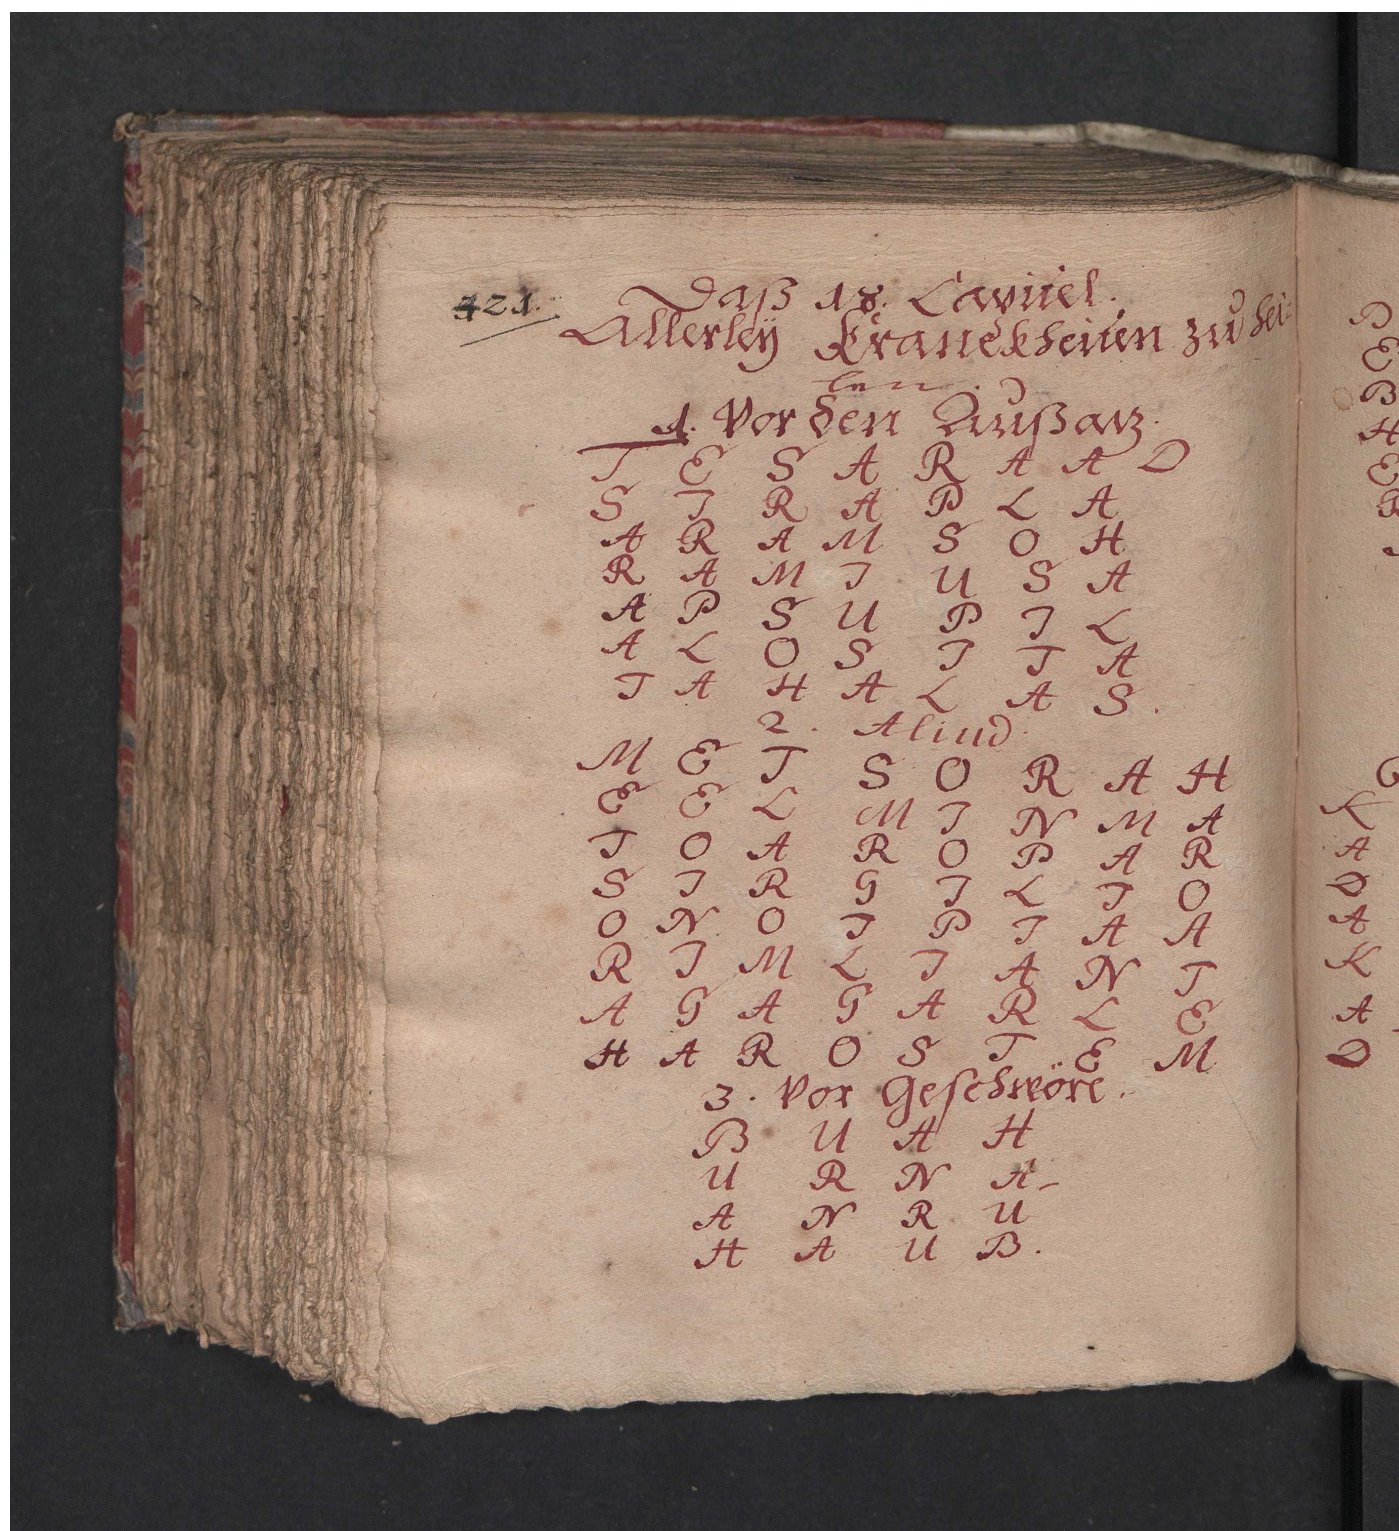 421.
Daß 18. Capitel.
Allerley Kranckheiten zu hei-
len.
1. Vor den Außatz.
T E S A R A A D
S I R A P L A
A R A M S O H
R A M I U S A
A P S U P I L
A L O S I T A
T A H A L A S.
2. Aliud.
M E T S O R A H
E E L M I N M A
T O A R O P A R
S I R G I L T O
O N O I P I A A
R I M L I A N T
A G A G A R L E
H A R O S T E M
3. Vor Geschwöre.
B U A H
U R N A
A N R U
H A U B.
D
E
B
H
E
R
K
A
D
A
K
A
D